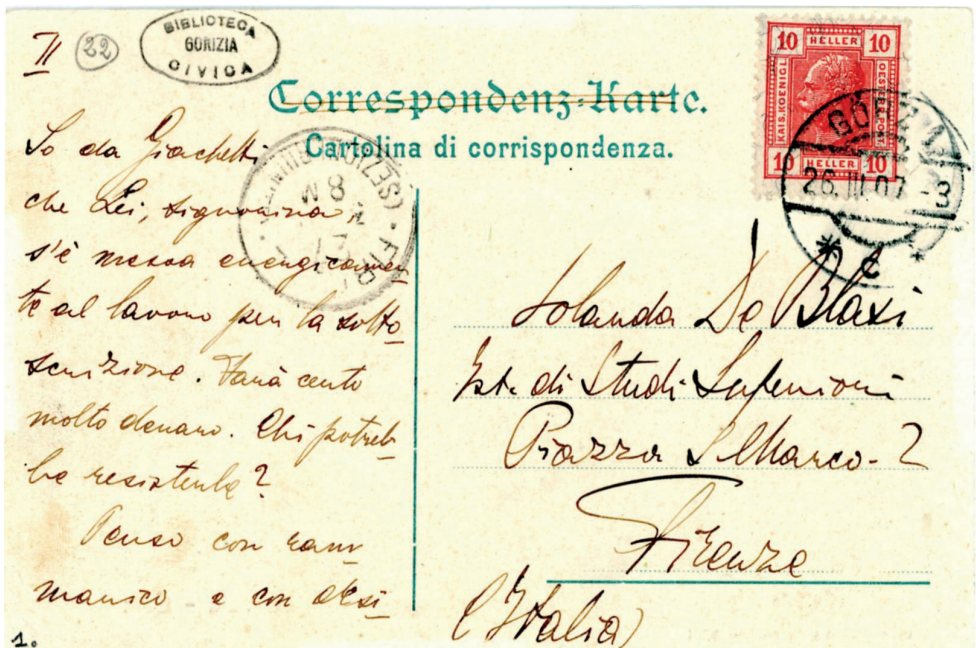 II
22
BIBLIOTECA
GORIZIA
CIVICA
Correspondenz-Karte.
Cartolina di corrispondenza.
10 HELLER 10
KAIS. KOENIGL.
OESTERR. POST
10 HELLER 10
GÖRZ 1
26. III. 07 - 3
* c *
So da Giachetti
che Lei, signorina,
s'è messa energicamen-
te al lavoro per la sotto-
scrizione. Farà certo
molto denaro. Chi potreb-
be resisterle?
Penso con ram-
marico e con desi-
Iolanda De Blasi
Ist. di Studi Superiori
Piazza S. Marco - 2
Firenze
(Italia)
1.